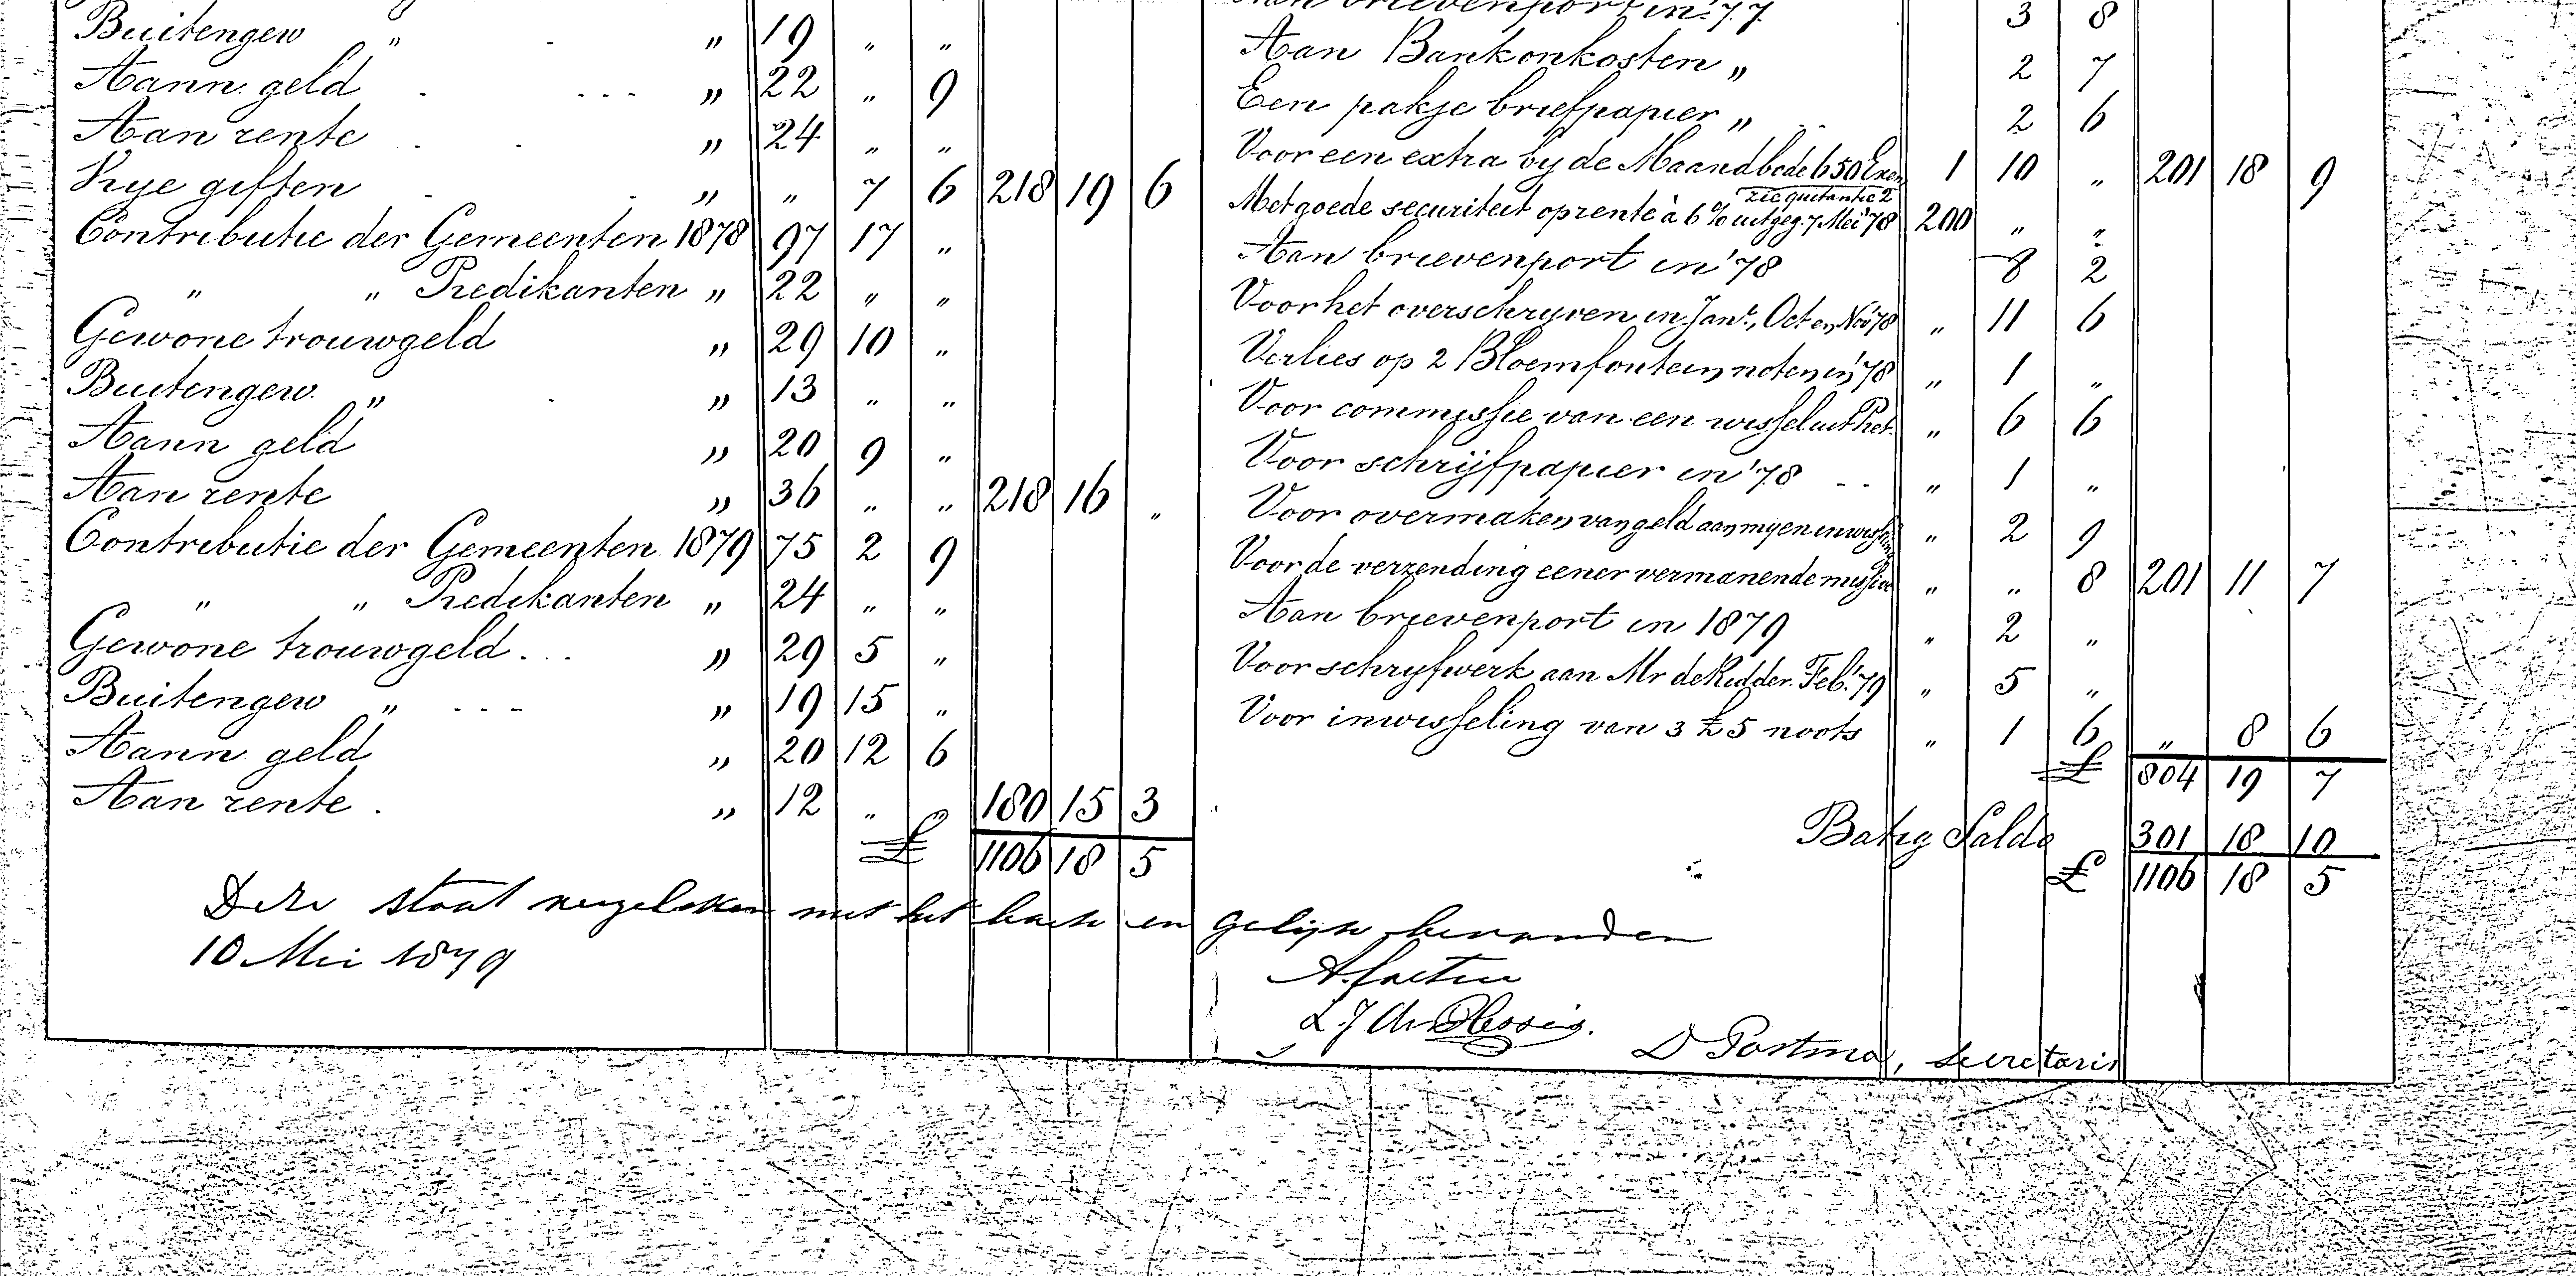 Buitengew " - " 19 " "
Aann. geld - - - - " 22 " 9
Aan rente - - " 24 " "
Vrye giften - - " " 7 6 218 19 6
Contributie der Gemeenten 1878 97 17 "
" " Predikanten " 22 " "
Gewone trouwgeld " 29 10 "
Buitengew. " - " 13 " "
Aann geld " 20 9 "
Aan rente " 36 " " 218 16 "
Contributie der Gemeenten 1879 75 2 9
" " Predikanten " 24 " "
Gewone trouwgeld . . . " 29 5 "
Buitengew " - - - " 19 15 "
Aann. geld " 20 12 6
Aan rente . " 12 " " 180 15 3
£ 1106 18 5
Deze staat vergeleken met het boek en gelijk bevonden
10 Mei 1879
Aan brievenport in '77 3 8
Aan Bankonkosten " 2 7
Een pakje briefpapier " - - 2 6
Voor een extra by de Maandbode 650 Exen 1 10 " 201 18 9
zie quitantie 2
Met goede securiteit op rente à 6 % uitgeg. 7 Mei '78 200 " "
Aan brievenport in '78 8 2
Voor het overschryven in Jan., Oct en Nov '78 " 11 6
Verlies op 2 Bloemfontein noten in '78 " 1 "
Voor commissie van een wissel uit " 6 6
Voor schrijfpapier in '78 - - " 1 "
Voor overmaken van geld aan myen " 2 9
Voor de verzending eener vermanende missive " " 8 201 11 7
Aan brievenport in 1879 " 2 "
Voor schryfwerk aan Mr de Ridder Feb. '79 " 5 "
Voor inwisseling van 3 £ 5 noots " 1 6 " 8 6
£ 804 19 7
Batig Saldo 301 18 10
£ 1106 18 5
L. J. du Plessis.
D Postma, secretaris